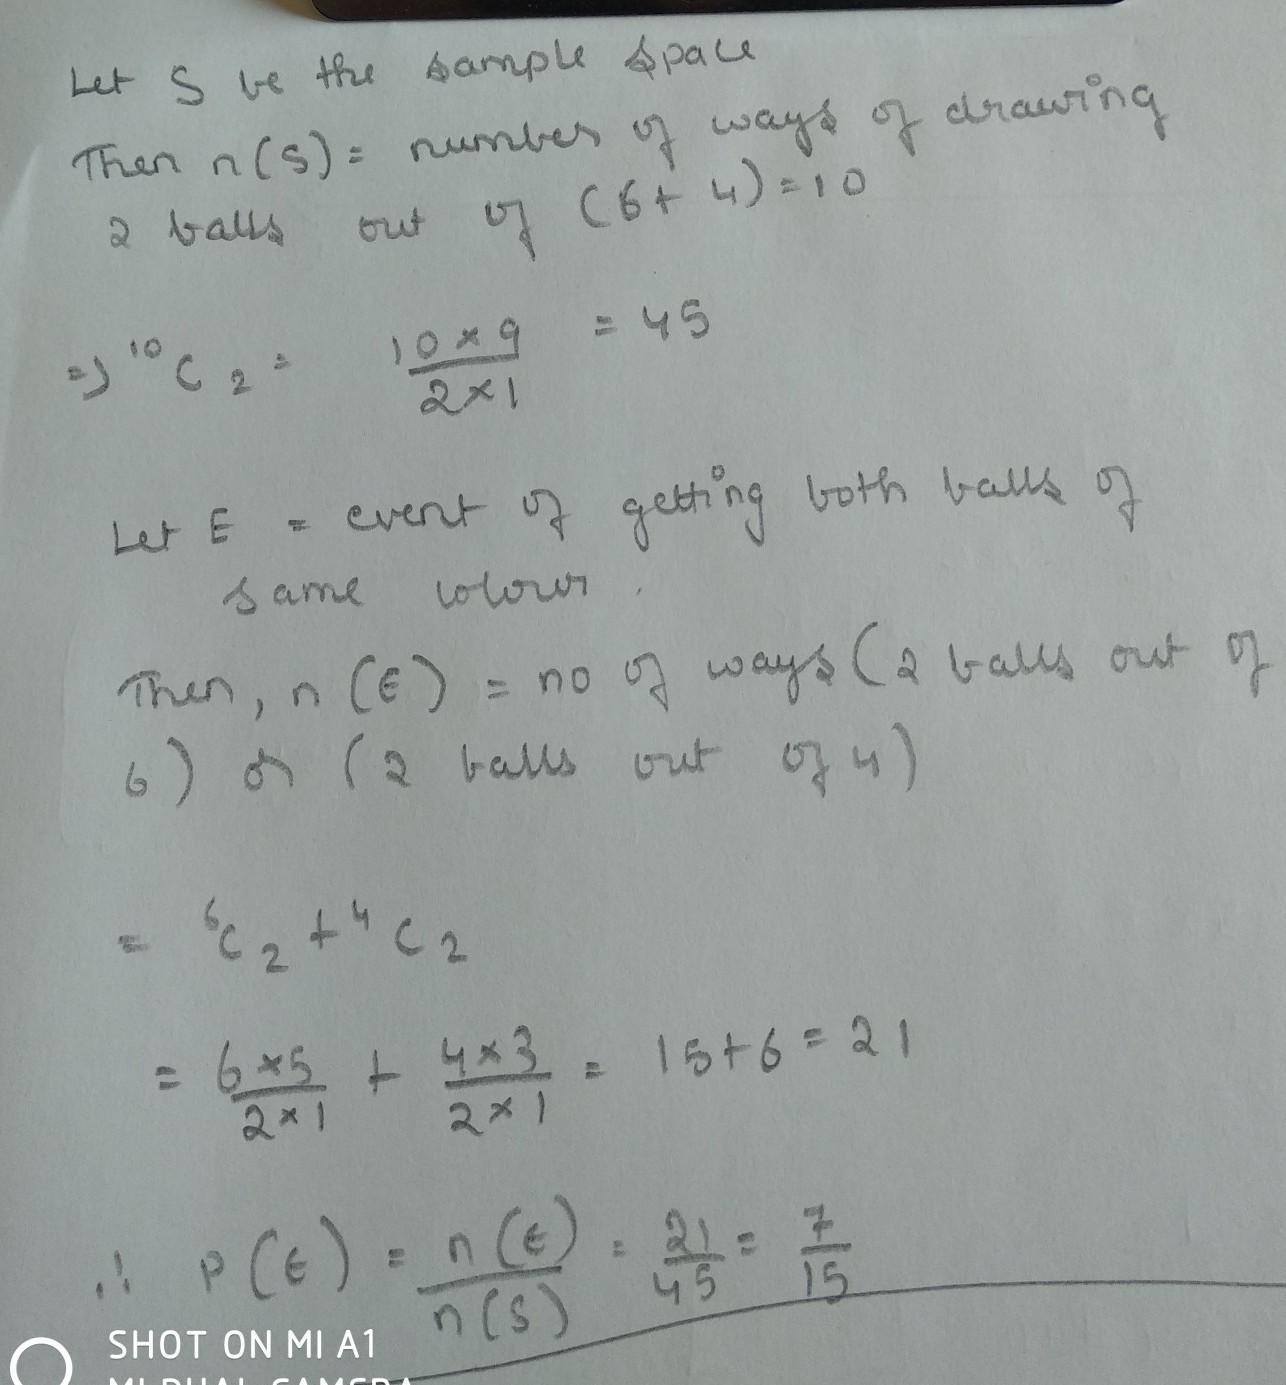 Let S be the sample space
Then n(S) = number of ways of drawing
2 balls out of (6+4)=10
=> ¹⁰C₂ = 10×9/2×1 = 45
Let E = event of getting both balls of
same colour.
Then, n(E) = no of ways (2 balls out of
6) or (2 balls out of 4)
= ⁶C₂ + ⁴C₂
= 6×5/2×1 + 4×3/2×1 = 15+6 = 21
∴ P(E) = n(E)/n(S) = 21/45 = 7/15
SHOT ON MI A1
MI DUAL CAMERA